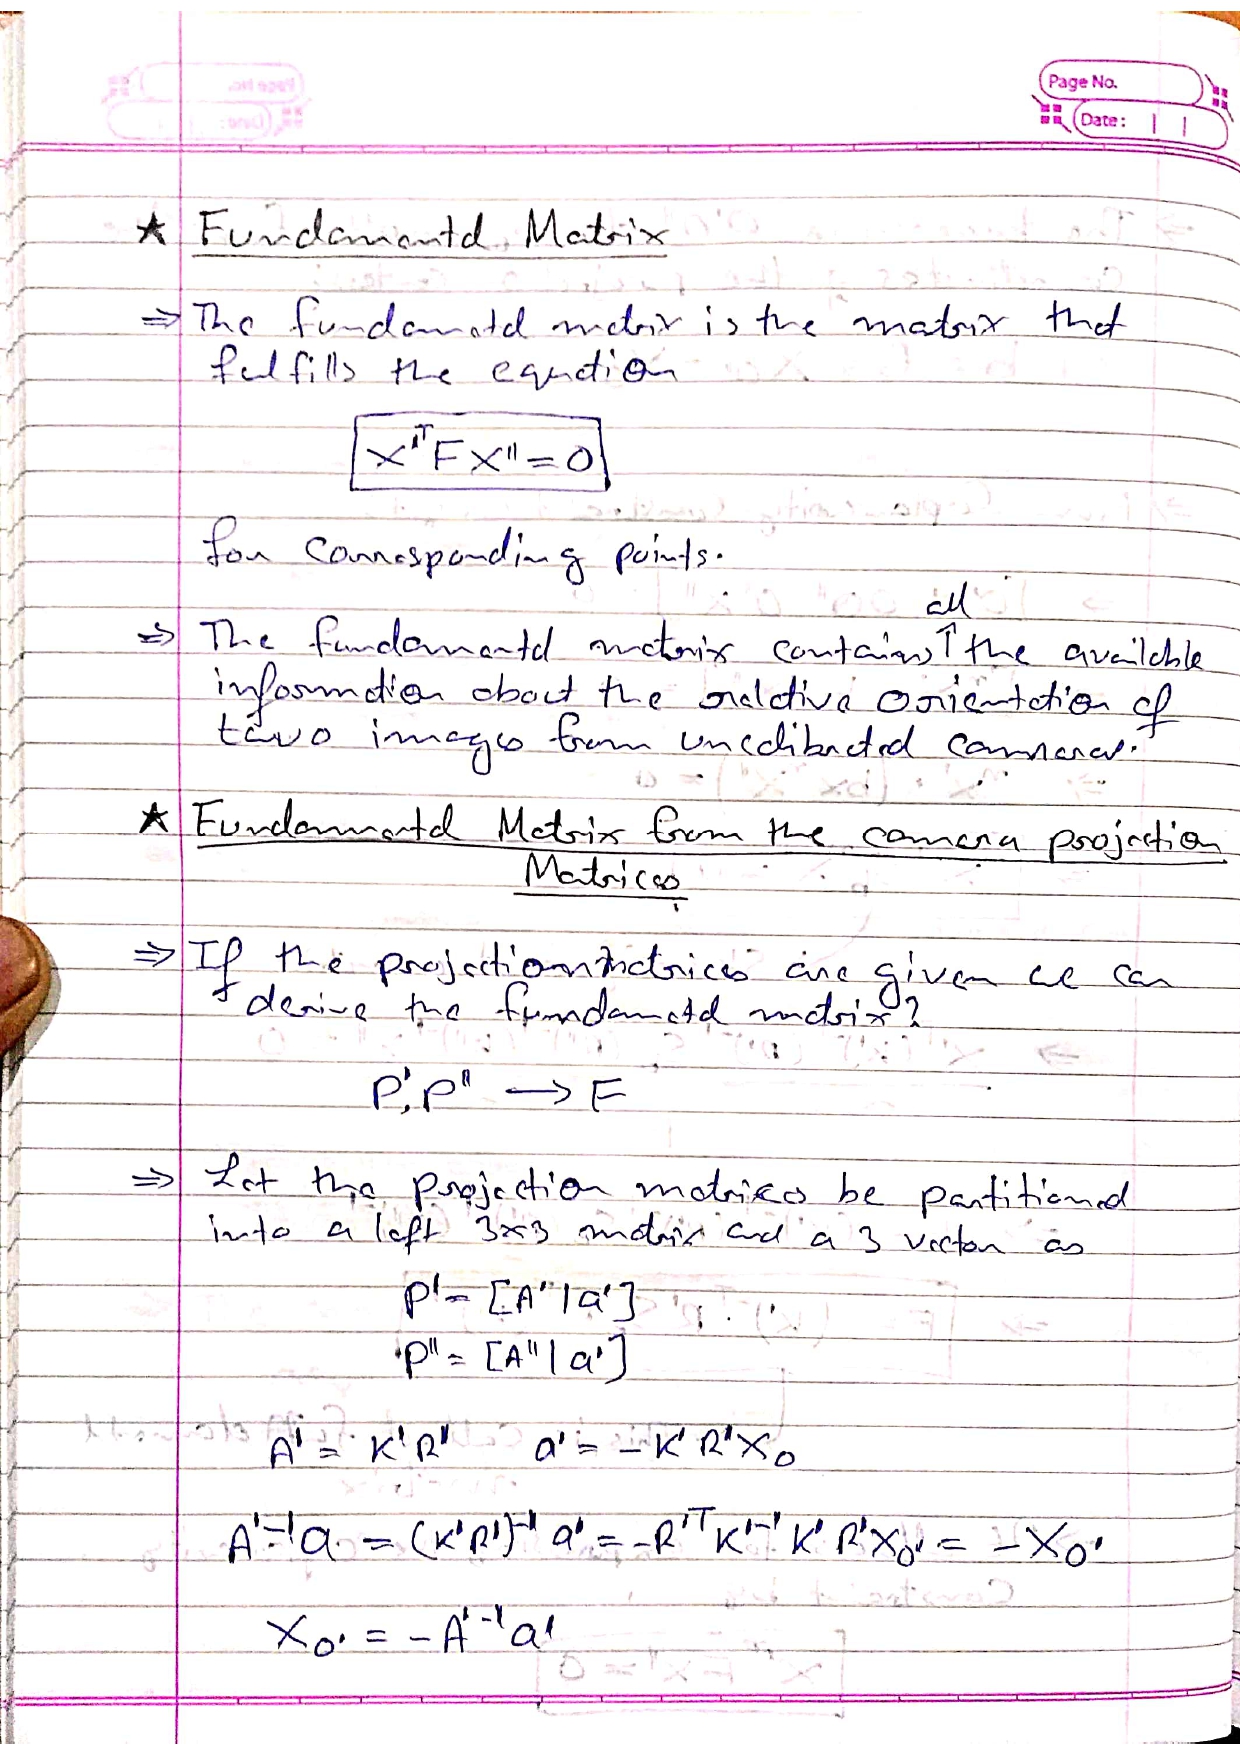 Page No.
Date: | |
★ Fundamental Matrix
⇒ The fundamental matrix is the matrix that
fulfills the equation
x'ᵀFx''=0
for corresponding points.
all
⇒ The fundamental matrix contains↑the available
information about the relative orientation of
two images from uncalibrated cameras.
★ Fundamental Matrix from the camera projection
Matrices
⇒ If the projection matrices are given we can
derive the fundamental matrix?
P', P'' → F
⇒ Let the projection matrices be partitioned
into a left 3x3 matrix and a 3 vector as
P' = [A'|a']
P'' = [A''|a']
A' = K'R' a' = -K'R'X₀
A'⁻¹a = (K'R')⁻¹ a' = -R'ᵀK'⁻¹ K'R'X₀' = -X₀'
X₀' = -A'⁻¹a'